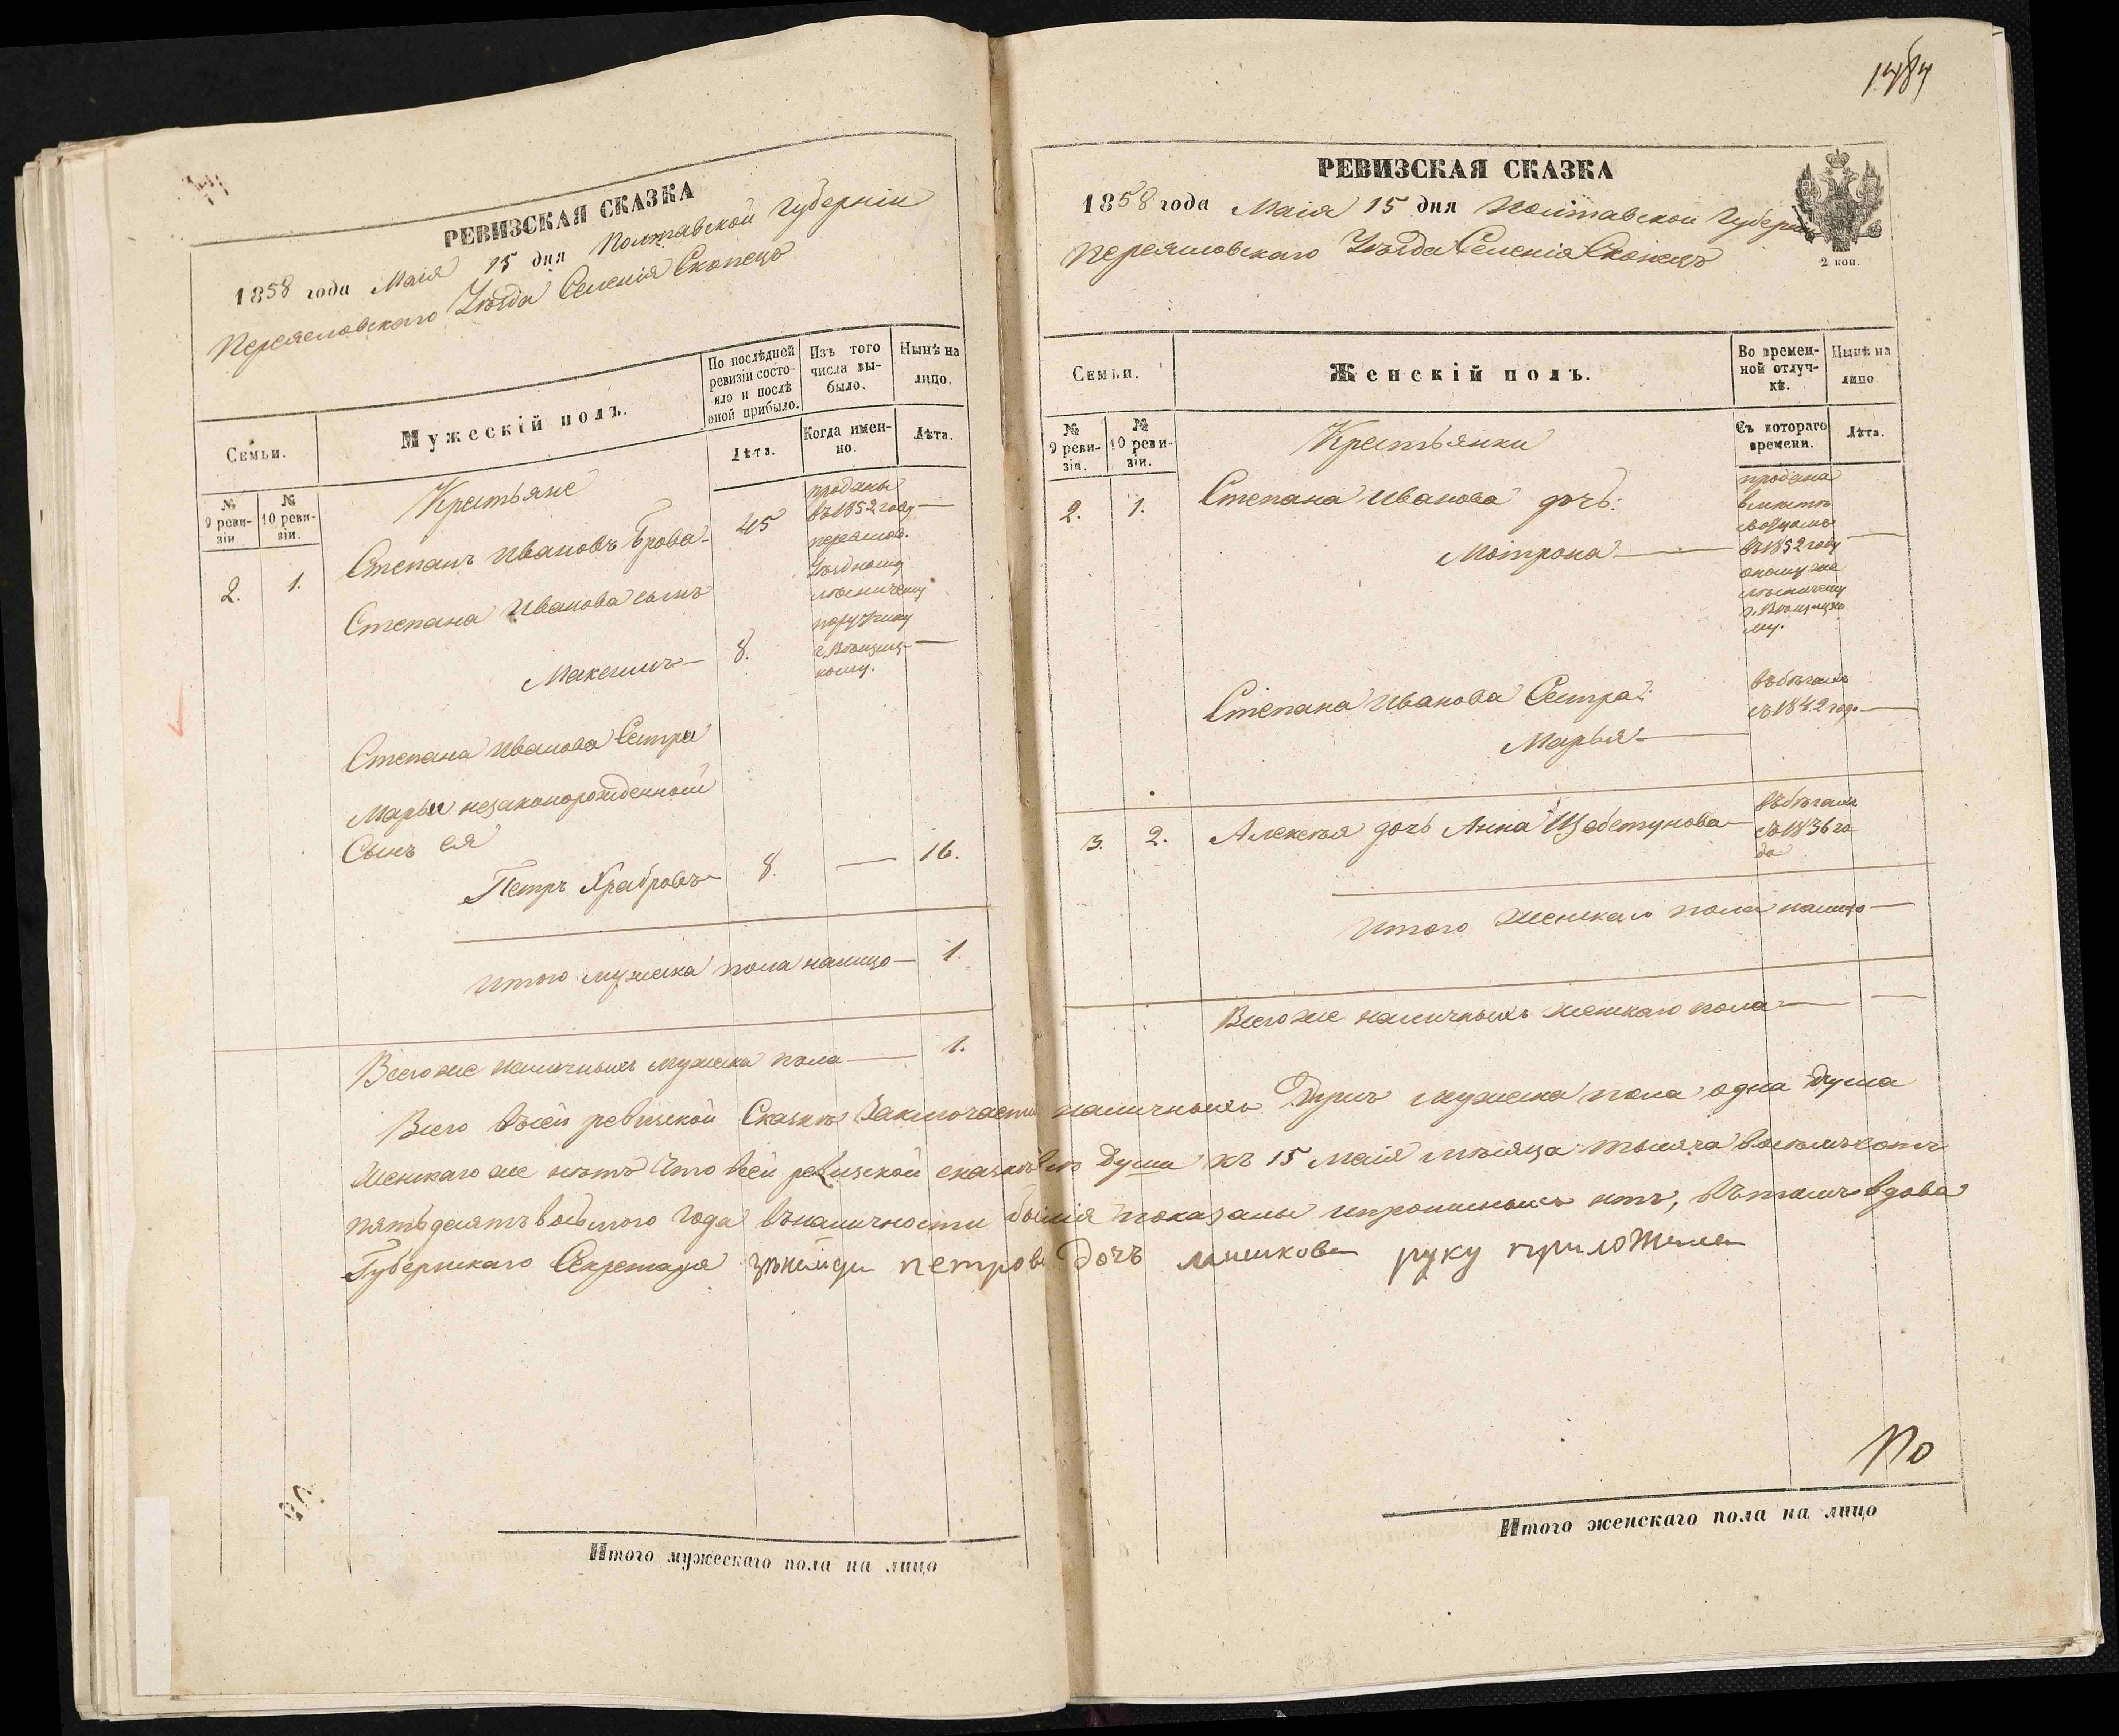 РЕВИЗСКАЯ СКАЗКА
1858 года Маія 15 дня Полтавской Губерніи
Переяславскаго Уѣзда Селенія Скопецъ
Семьи.
Мужескій полъ.
По послѣдней ревизіи состояло и послѣ оной прибыло.
Изъ того числа выбыло.
Нынѣ на лицо.
№ 9 ревизіи
№ 10 ревизіи.
Лѣта.
Когда именно.
Лѣта.
Крестьяне
2. 1. Степанъ Ивановъ Брова 45
проданы
въ 1852 году —
переяслав.
Уѣздному
лѣсничему
поручику
Степана Иванова сынъ
Максимъ — 8. —
Степана Иванова Сестры
Марьи незаконорожденной
Сынъ ея
Петръ Храбровъ 8. — 16.
Итого мужеска пола налицо — 1.
Всего же наличныхъ мужеска пола — 1.
Итого мужескаго пола на лицо
1484
РЕВИЗСКАЯ СКАЗКА
1858 года Маія 15 дня Полтавской Губерніи
Переяславскаго Уѣзда Селенія Скопецъ
2 коп.
Семьи.
Женскій полъ.
Во временной отлучкѣ.
Нынѣ на лицо.
№ 9 ревизіи.
№ 10 ревизіи.
Съ котораго времени.
Лѣта.
Крестьянки
2. 1. Степана Иванова дочь:
Мотрона —
продана
вмѣстѣ
въ 1852 году
лѣсничему
Степана Иванова Сестра:
Марья —
въ бѣгахъ
съ 1842 год. —
3. 2. Алексѣя дочь Анна Щебетунова
въ бѣгахъ
съ 1836 го
да
Итого женскаго пола налицо —
Всего же наличныхъ женскаго пола — —
Всего въ сей ревизской Сказкѣ Заключается наличныхъ Душъ мужеска пола одна душа
женскаго же нѣтъ Что въ сей ревизской сказкѣ всѣ души къ 15 Маія мѣсяца тысяча восемьсотъ
пятьдесятъ восьмого года въ наличности бывшія показаны и прописныхъ нѣтъ, въ томъ вдова
Губернскаго Секретаря петрова дочь руку приложила
Итого женскаго пола на лицо